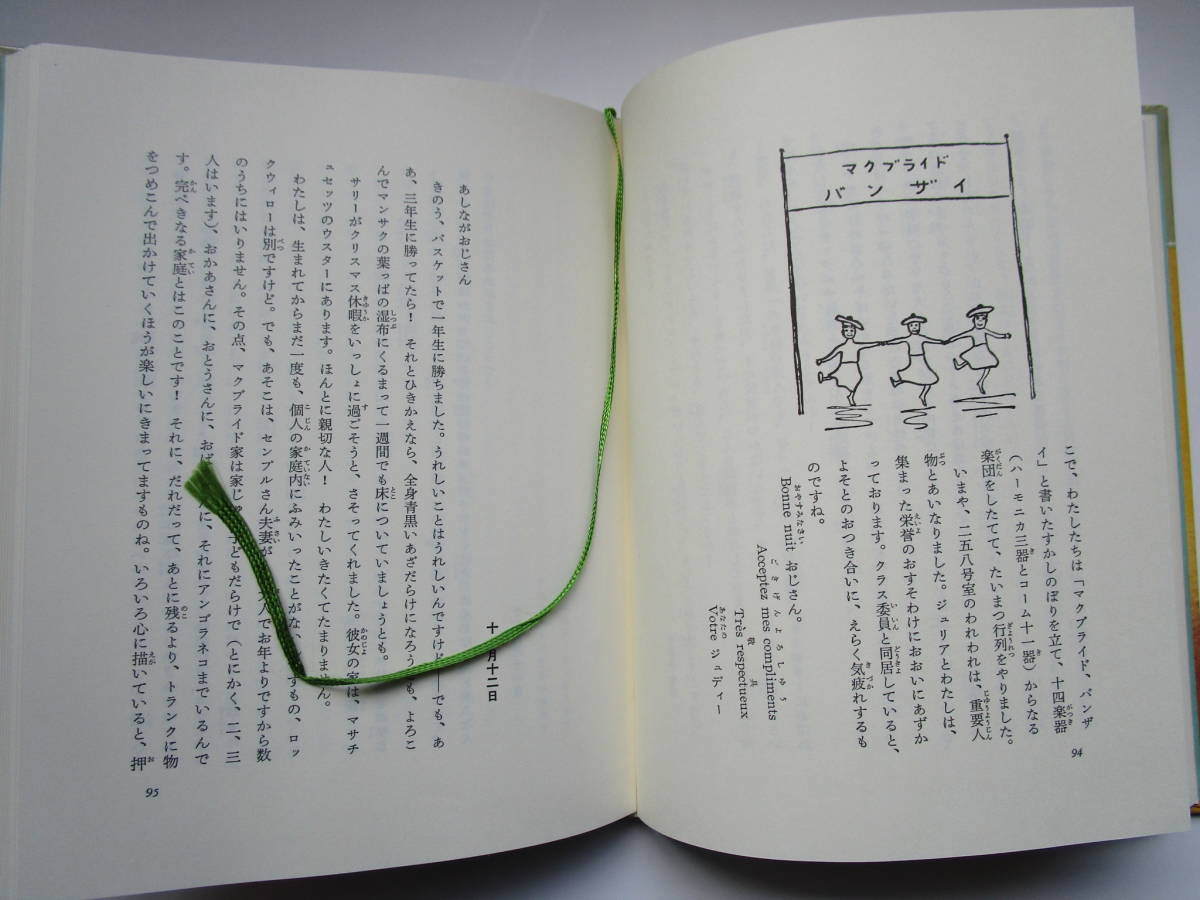 マクブライド
バンザイ
こで、わたしたちは「マクブライド、バンザ
イ」と書いたすかしのぼりを立て、十四楽器
（ハーモニカ三器とコーム十一器）からなる
楽団をしたてて、たいまつ行列をやりました。
いまや、二五八号室のわれわれは、重要人
物とあいなりました。ジュリアとわたしは、
集まった栄誉のおすそわけにおおいにあずか
っております。クラス委員と同居していると、
よそとのおつき合いに、えらく気疲れするも
のですね。
おやすみなさい
Bonne nuit おじさん。
ごきげんよろしゅう
Acceptez mes compliments
敬具
Très respectueux
あなたの
Votre ジュディー
94
十 月十二日
あしながおじさん
きのう、バスケットで一年生に勝ちました。うれしいことはうれしいんですけど――でも、あ
あ、三年生に勝ってたら！ それとひきかえなら、全身青黒いあざだらけになろう も、よろこ
んでマンサクの葉っぱの湿布にくるまって一週間でも床についていましょうとも。
サリーがクリスマス休暇をいっしょに過ごそうと、さそってくれました。彼女の家は、マサチ
ュセッツのウスターにあります。ほんとに親切な人！ わたしいきたくてたまりません。
わたしは、生まれてからまだ一度も、個人の家庭内にふみいったことがな、 すもの、ロッ
クウィローは別ですけど。でも、あそこは、センプルさん夫妻が 人でお年よりですから数
のうちにはいりません。その点、マクブライド家は家じゅ 子どもだらけで（とにかく、二、三
人はいます）、おかあさんに、おとうさんに、おば んに、それにアンゴラネコまでいるんで
す。完ぺきなる家庭とはこのことです！ それに、だれだって、あとに残るより、トランクに物
をつめこんで出かけていくほうが楽しいにきまってますものね。いろいろ心に描いていると、押
95